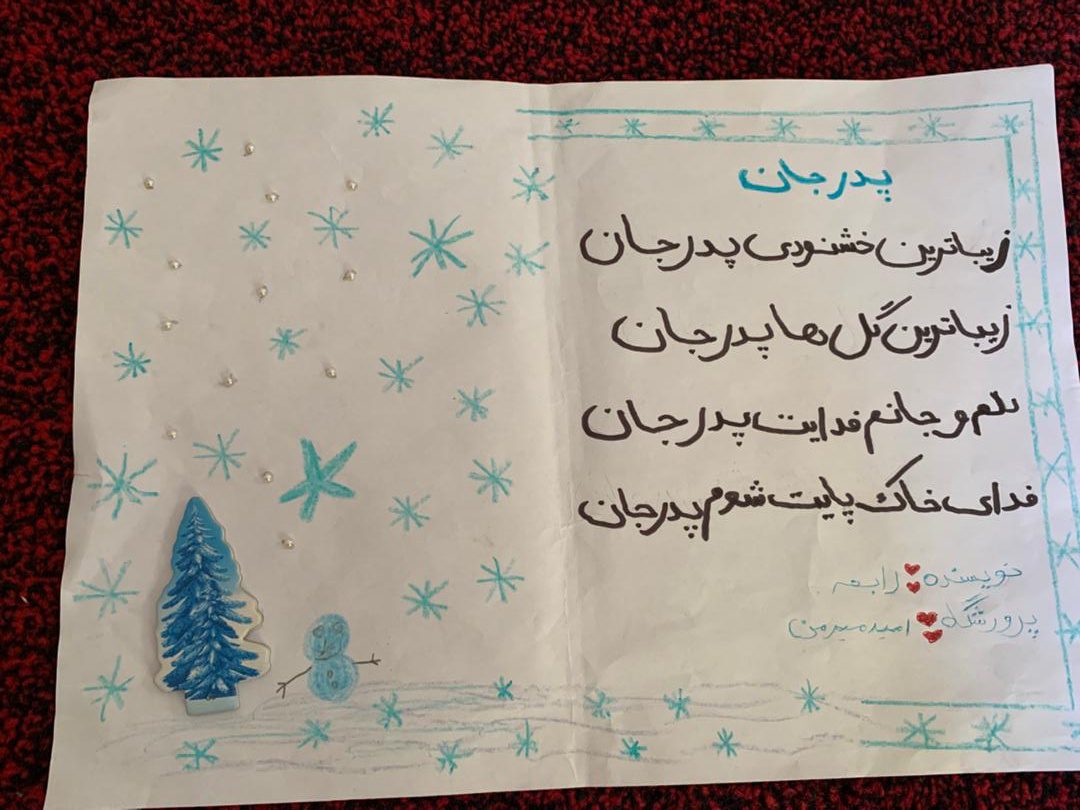 پدر جان
زیباترین خشنودی پدر جان
زیباترین گل ها پدر جان
دلم و جانم فدایت پدر جان
فدای خاک پایت شوم پدر جان
نویسنده: رابعه
پرورشگاه: امید میرمن